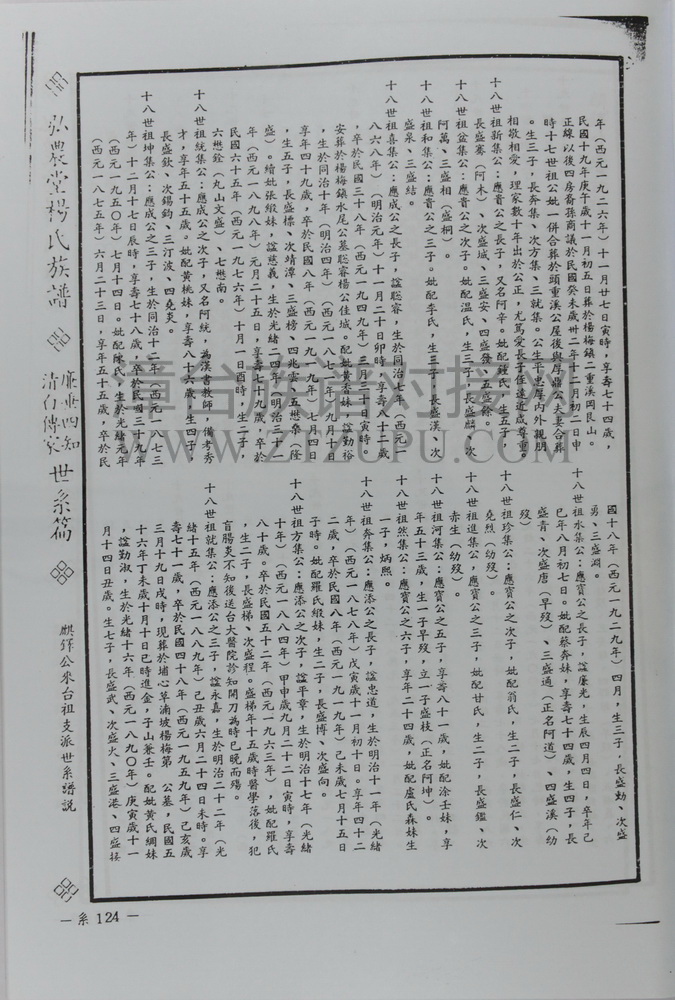 年（西元一九二六年）十一月廿七日寅時，享壽七十四歲，
民國十九年庚午歲十一月初五日葬於楊梅鎮二重溪岡艮山。
正線以後四房裔孫商議於民國癸未歲卅二年十二月初二日申
時十七世祖公妣一併合葬於頭重溪公屋後與厚鼎公夫妻合葬
。生三子，長奔集、次方集、三就集。公生平忠厚內外親朋
相敬相愛，理家數十年出於公正，尤篤愛長子侄遠近咸尊重。
十八世祖新集公：應晋公之長子，又名阿辛。妣配鍾氏，生五子，
長盛寿（阿木）、次盛城、三盛安、四盛發、五盛餘。
十八世祖盆集公：應晋公之次子。妣配溫氏，生三子，長盛麟、次
阿萬、三盛相（盛桐）。
十八世祖和集公：應晋公之三子。妣配李氏，生三子，長盛漢、次
盛泉、三盛結。
十八世祖喜集公：應成公之長子，諡聡睿，生於同治七年（西元一
八六八年）（明治元年）十一月二十日卯時，享壽八十二歲
，卒於民國三十八年（西元一九四九年）三月三十日寅時。
安葬於楊梅鎮水尾公墓聡睿楊公佳城。配妣黃柔妹，諡勤裕
，生於同治十年（明治四年）（西元一八七一年）九月十日
享年四十九歲，卒於民國八年（西元一九一九年）七月四日
，生五子，長盛樑、次靖潭、三盛榜、四兆雲、五懋奉（隆
盛）。續妣張緞妹，諡慈義，生於光緒二四年（明治三十一
年（西元一八九八年）元月二十五日，享壽七十九歲，卒於
民國六十五年（西元一九七六年）十月一日酉時，生二子，
六懋銓（丸山文盛）、七懋南。
十八世祖統集公：應成公之次子，又名阿統，為漢書教師，備考秀
才，享年五十五歲。妣配黃桃妹，享壽八十六歲，生四子，
長盛欽、次錫鈞、三汀波、四堯炎。
十八世祖坤集公：應成公之三子，生於同治十二年（西元一八七三
年）十二月十七日辰時，享壽七十八歲，卒於民國三十九年
（西元一九五０年）七月十四日。妣配陳氏，生於光緒元年
（西元一八七五年）六月二十三日，享年五十五歲，卒於民
國十八年（西元一九二九年）四月，生三子，長盛勤、次盛
勇、三盛淵。
十八世祖水集公：應寶公之長子，諡廉光，生辰四月四日，卒年己
巳年八月初七日。妣配蔡奔妹，享壽七十四歲，生四子，長
盛青、次盛唐（早歿）、三盛通（正名阿道）、四盛溪（幼
歿）
十八世祖珍集公：應寶公之次子，妣配翁氏，生二子，長盛仁、次
堯烈（幼歿）。
十八世祖進集公：應寶公之三子，妣配甘氏，生二子，長盛鑑、次
赤生（幼歿）。
十八世祖河集公：應寶公之五子，享壽八十一歲，妣配涂壬妹，享
年五十三歲，生一子早歿，立一子盛枝（正名阿坤）。
十八世祖然集公：應寶公之六子，享年二十四歲，妣配盧氏森妹生
一子，炳熙。
十八世祖奔集公：應添公之長子，諡忠道，生於明治十一年（光緒
年）（西元一八七八年）戊寅歲十一月初十日。享年四十二
二歲，卒於民國八年（西元一九一九年）己未歲七月十五日
子時。妣配羅氏緞妹，生二子，長盛博、次盛向。
十八世祖方集公：應添公之次子，諡平章，生於明治十七年（光緒
十年）（西元一八八四年）甲申歲九月二十二日寅時，享壽
八十歲。卒於民國五十二年（西元一九六三年），妣配羅氏
，生二子，長盛梯、次盛程。盛梯年十五歲時醫學落後，犯
盲腸炎不知後送台大醫院診知開刀為時已晚而殤。
十八世祖就集公：應添公之三子，諡永嘉，生於明治二十二年（光
緒十五年（西元一八八九年）己丑歲六月二十四日未時。享
壽七十一歲，卒於民國四十八年（西元一九五九年）己亥歲
三月十九日戌時，現葬於埔心草湳坡楊梅第　公墓，民國五
十六年丁未歲十月十日巳時進金，子山兼壬。配妣黃氏綢妹
，諡勤淑，生於光緒十六年（西元一八九０年）庚寅歲十一
月十四日丑歲。生七子，長盛武、次盛火、三盛港、四盛接
弘農堂楊氏族譜
廉垂四知
清白傳家
世系篇
麒鋅公來台祖支派世系譜說
— 系 124 —
WWW.ZTZUPU.COM